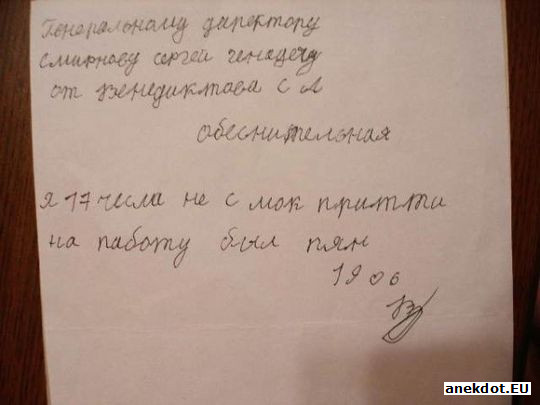 Генеральному директору
смирнову сергей генадечу
от Венедиктова С А
обеснительная
я 17 числа не с мок притти
на работу был пян
19 06
anekdot.EU